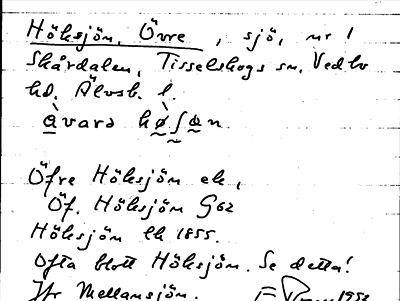 Höksjön, Övre, sjö, nr 1
Skårdalen, Tisselskogs sn. Vedbo
hd. Älvsb. l.
àvarə hø̀ʃən.
Öfre Höksjön ek,
Öf. Höksjön G62
Höksjön lk 1855.
Ofta blott Höksjön. Se detta!
Jfr Mellansjön. 1950